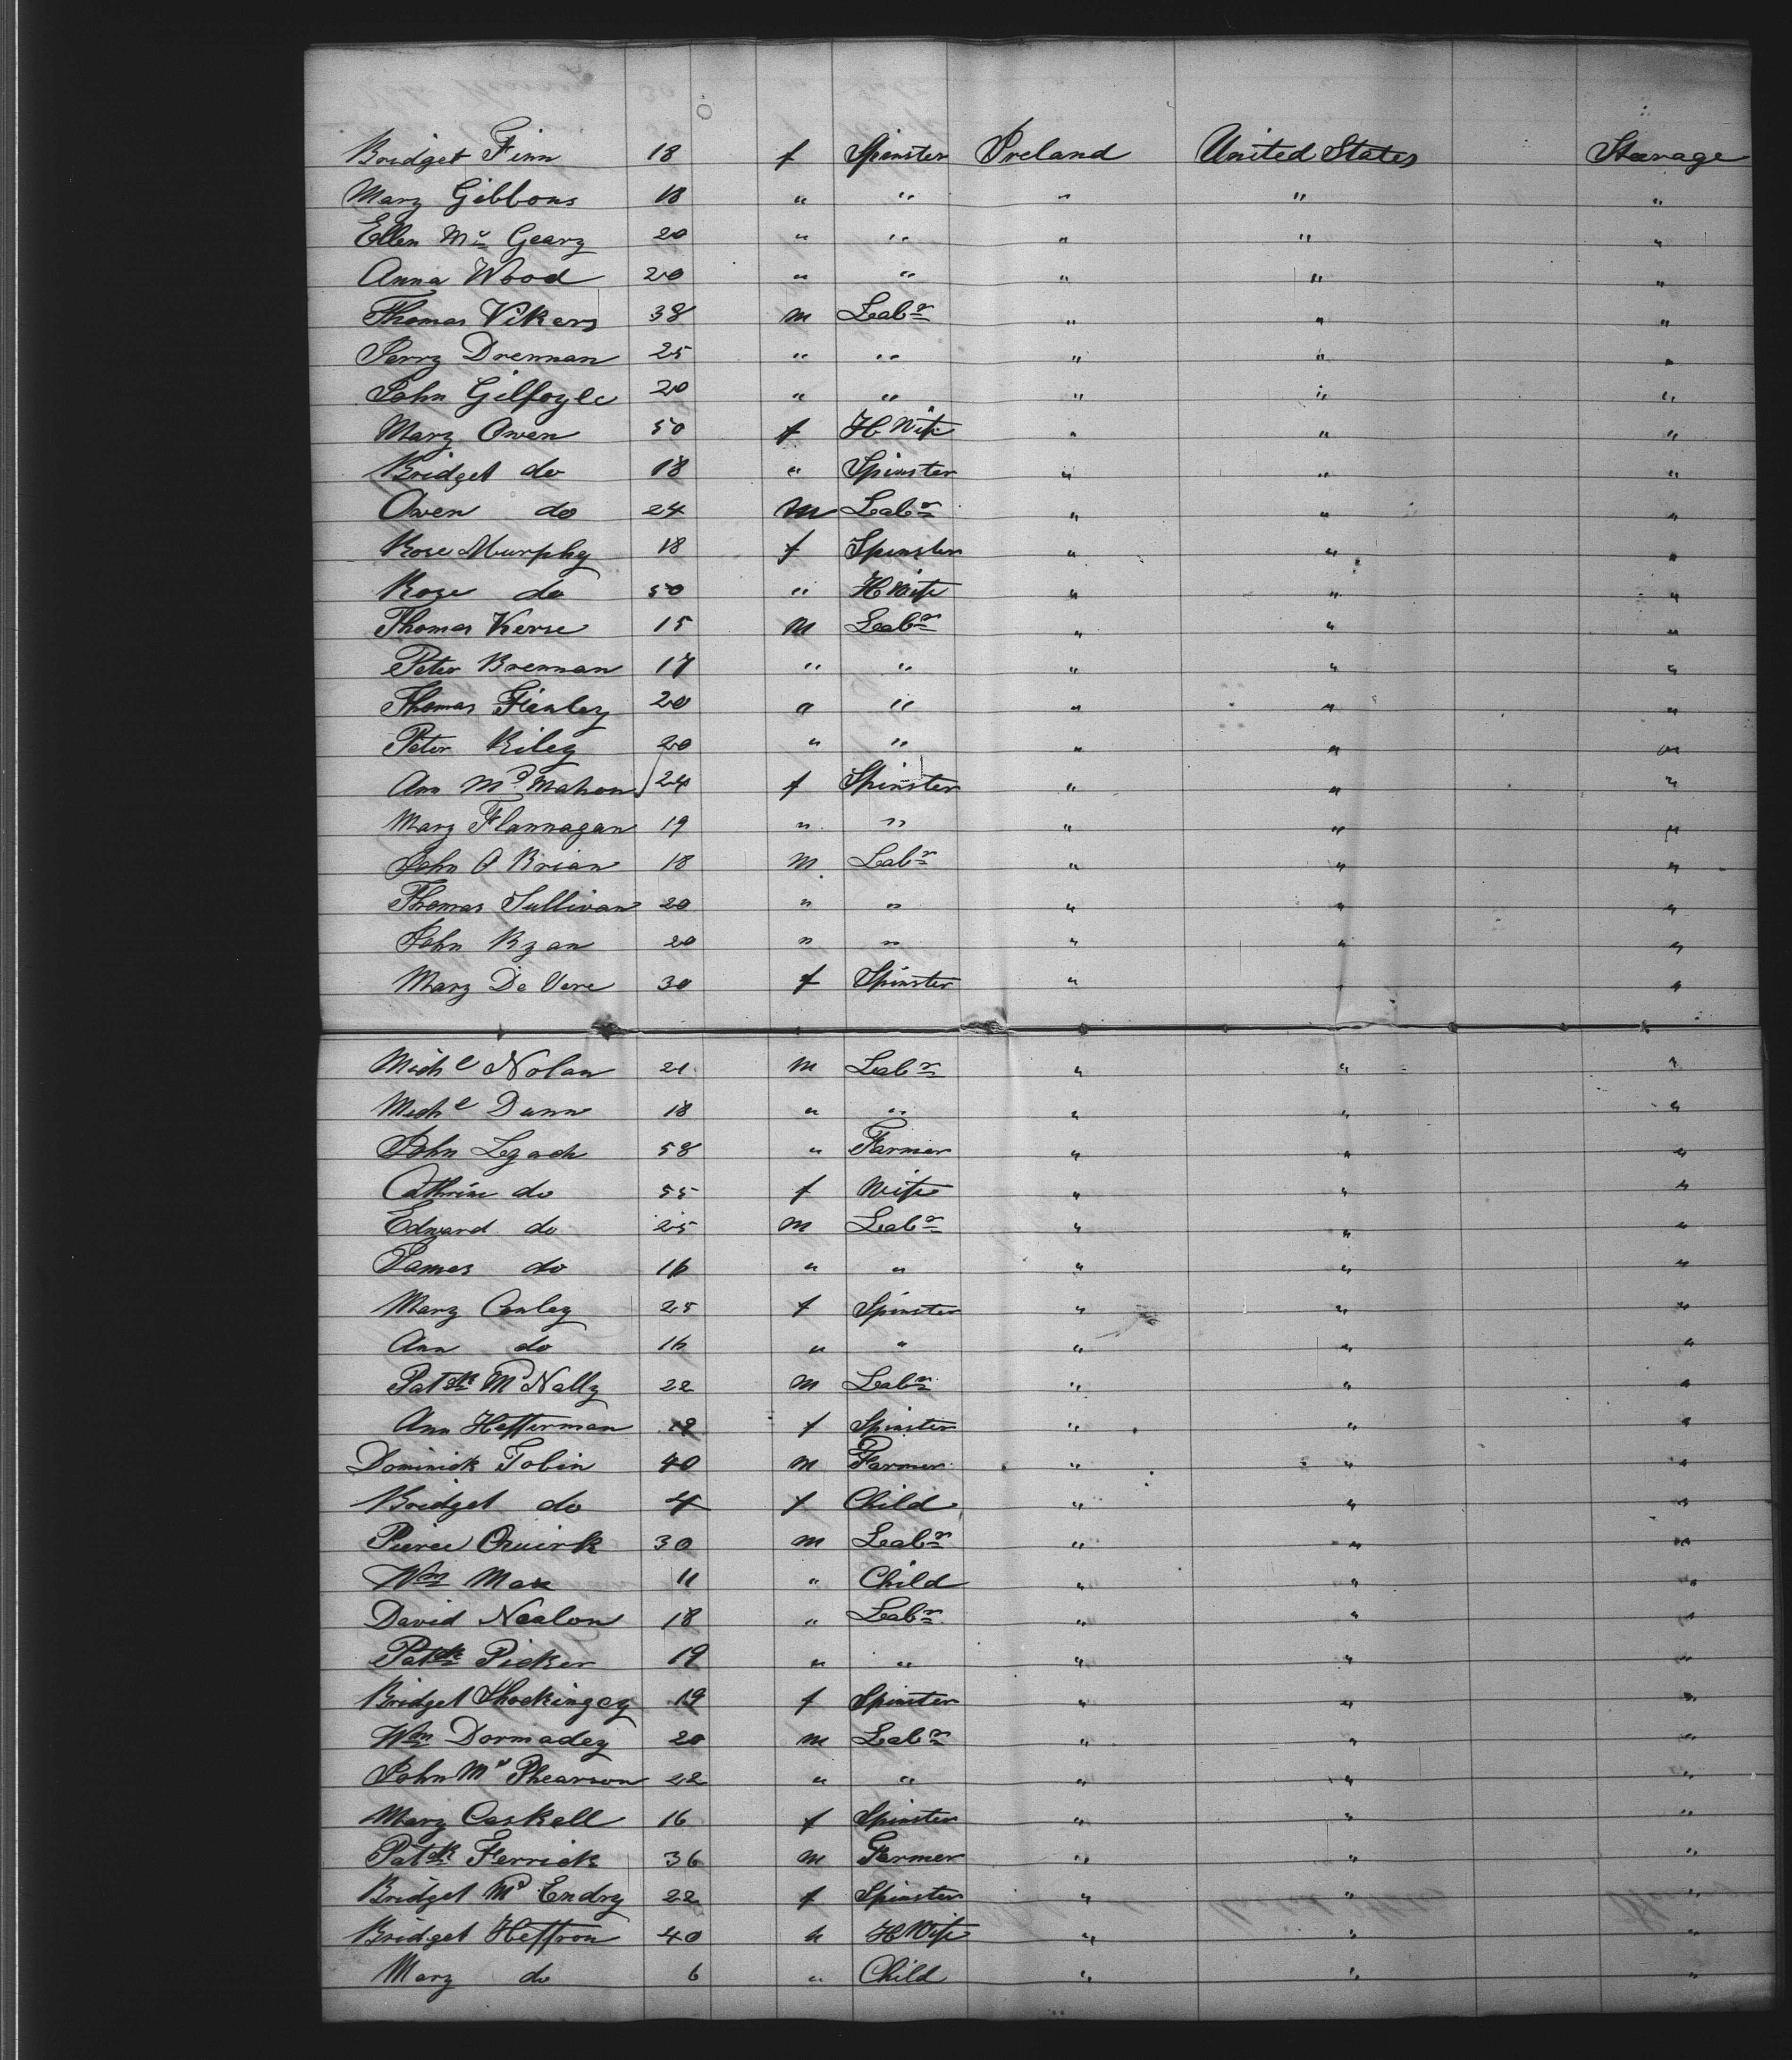 Bridget Finn 18 f Spinster Ireland United States Steerage
Mary Gibbons 18 " " " " "
Ellen Mc Geary 20 " " " " "
Anna Wood 20 " " " " "
Thomas Vikers 38 m Labr " " "
Jerry Drennan 25 " " " " "
John Gilfoyle 20 " " " " "
Mary Owen 50 f H Wife " " "
Bridget do 18 " Spinster " " "
Owen do 24 m Labr " " "
Rose Murphy 18 f Spinster " " "
Rose do 50 " H Wife " " "
Thomas Kerse 15 m Labr " " "
Peter Brennan 17 " " " " "
Thomas Finley 20 " " " " "
Peter Riley 20 " " " " "
Ann Mc Mahon 24 f Spinster " " "
Mary Flannagan 19 " " " " "
John O Brian 18 m Labr " " "
Thomas Sullivan 20 " " " " "
John Ryan 20 " " " " "
Mary De Vere 30 f Spinster " " "
Michl Nolan 21 m Labr " " "
Michl Dunn 18 " " " " "
John Legach 58 " Farmer " " "
Cathrine do 55 f Wife " " "
Edward do 25 m Labr " " "
James do 16 " " " " "
Mary Conley 25 f Spinster " " "
Ann do 16 " " " " "
Patck Mc Nally 22 m Labr " " "
Ann Hefferman f Spinster " " "
Dominick Tobin 40 m Farmer " " "
Bridget do 4 f Child " " "
Pierce Quirk 30 m Labr " " "
Wm 11 " Child " " "
David Nealon 18 " Labr " " "
Patck Picker 19 " " " " "
Bridget 19 f Spinster " " "
Wm Dormadey 20 m Labr " " "
John Mc Phearson 22 " " " " "
Mary Caskell 16 f Spinster " " "
Patck Ferrick 36 m Farmer " " "
Bridget Mc Endry 22 f Spinster " " "
Bridget Heffron 40 " H Wife " " "
Mary do 6 " Child " " "